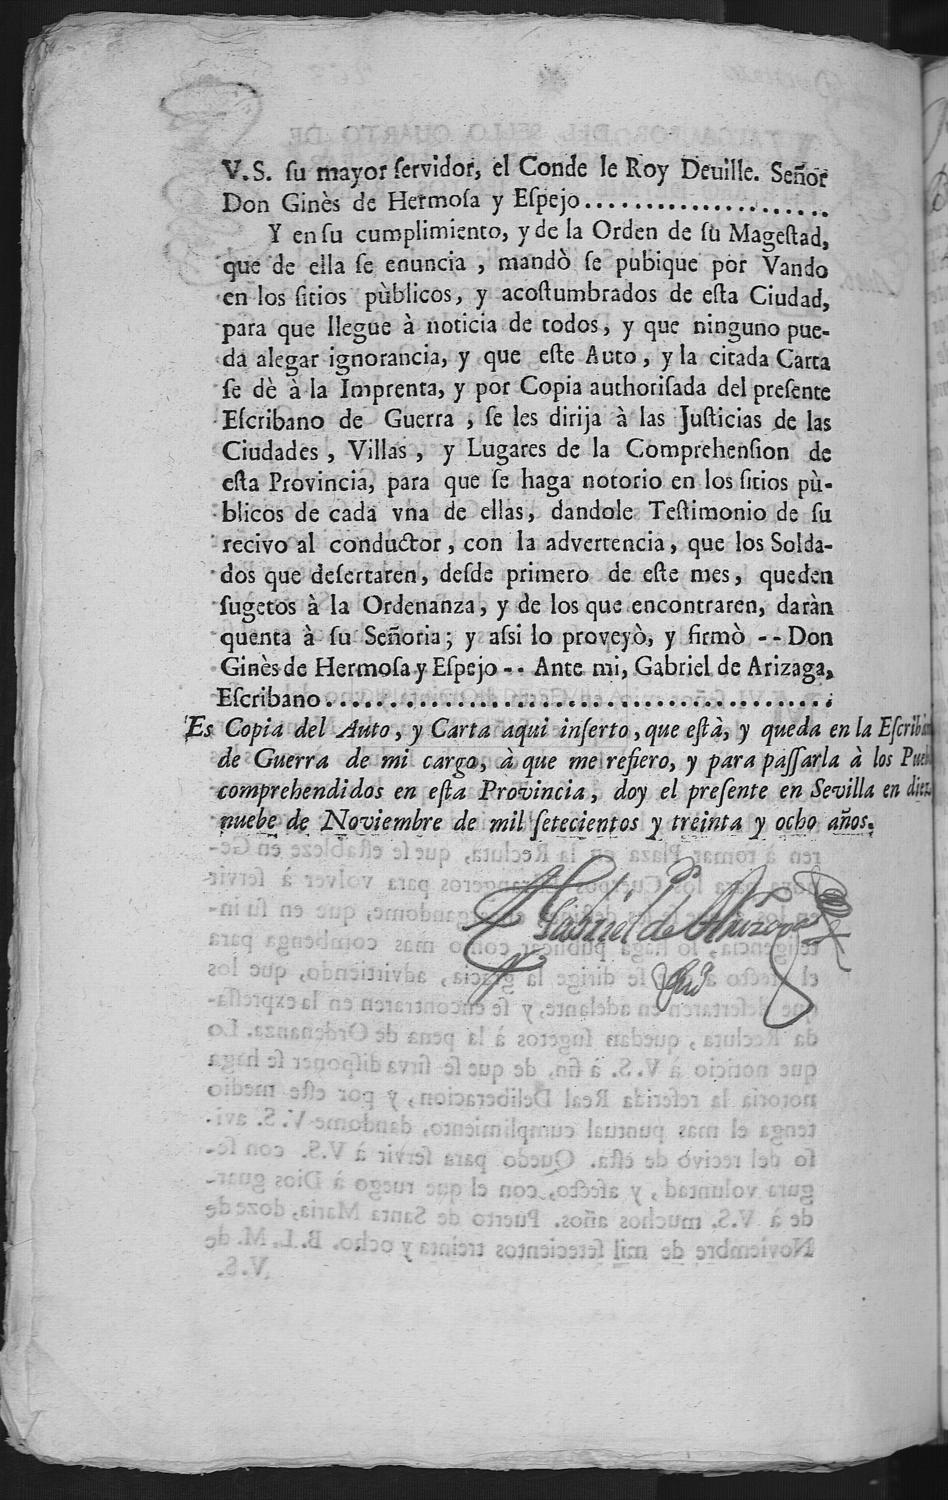 V.S. ſu mayor ſervidor, el Conde le Roy Deuille. Señor
Don Ginès de Hermoſa y Eſpejo.....................
Y en ſu cumplimiento, y de la Orden de ſu Mageſtad,
que de ella ſe enuncia, mandò ſe pubique por Vando
en los ſitios pùblicos, y acoſtumbrados de eſta Ciudad,
para que llegue à noticia de todos, y que ninguno pue-
da alegar ignorancia, y que eſte Auto, y la citada Carta
ſe dè à la Imprenta, y por Copia authoriſada del preſente
Eſcribano de Guerra, ſe les dirija à las Juſticias de las
Ciudades, Villas, y Lugares de la Comprehenſion de
eſta Provincia, para que ſe haga notorio en los ſitios pù-
blicos de cada vna de ellas, dandole Teſtimonio de ſu
recivo al conductor, con la advertencia, que los Solda-
dos que deſertaren, deſde primero de eſte mes, queden
ſugetos à la Ordenanza, y de los que encontraren, daràn
quenta à ſu Señoria; y aſsi lo proveyò, y firmò -- Don
Ginès de Hermoſa y Eſpejo -- Ante mi, Gabriel de Arizaga,
Eſcribano.......................................
Es Copia del Auto, y Carta aqui inſerto, que eſtà, y queda en la Eſcriban
de Guerra de mi cargo, à que me refiero, y para paſſarla à los Pueb
comprehendidos en eſta Provincia, doy el preſente en Sevilla en diez
nuebe de Noviembre de mil ſetecientos y treinta y ocho años.
Gabriel de Arizaga